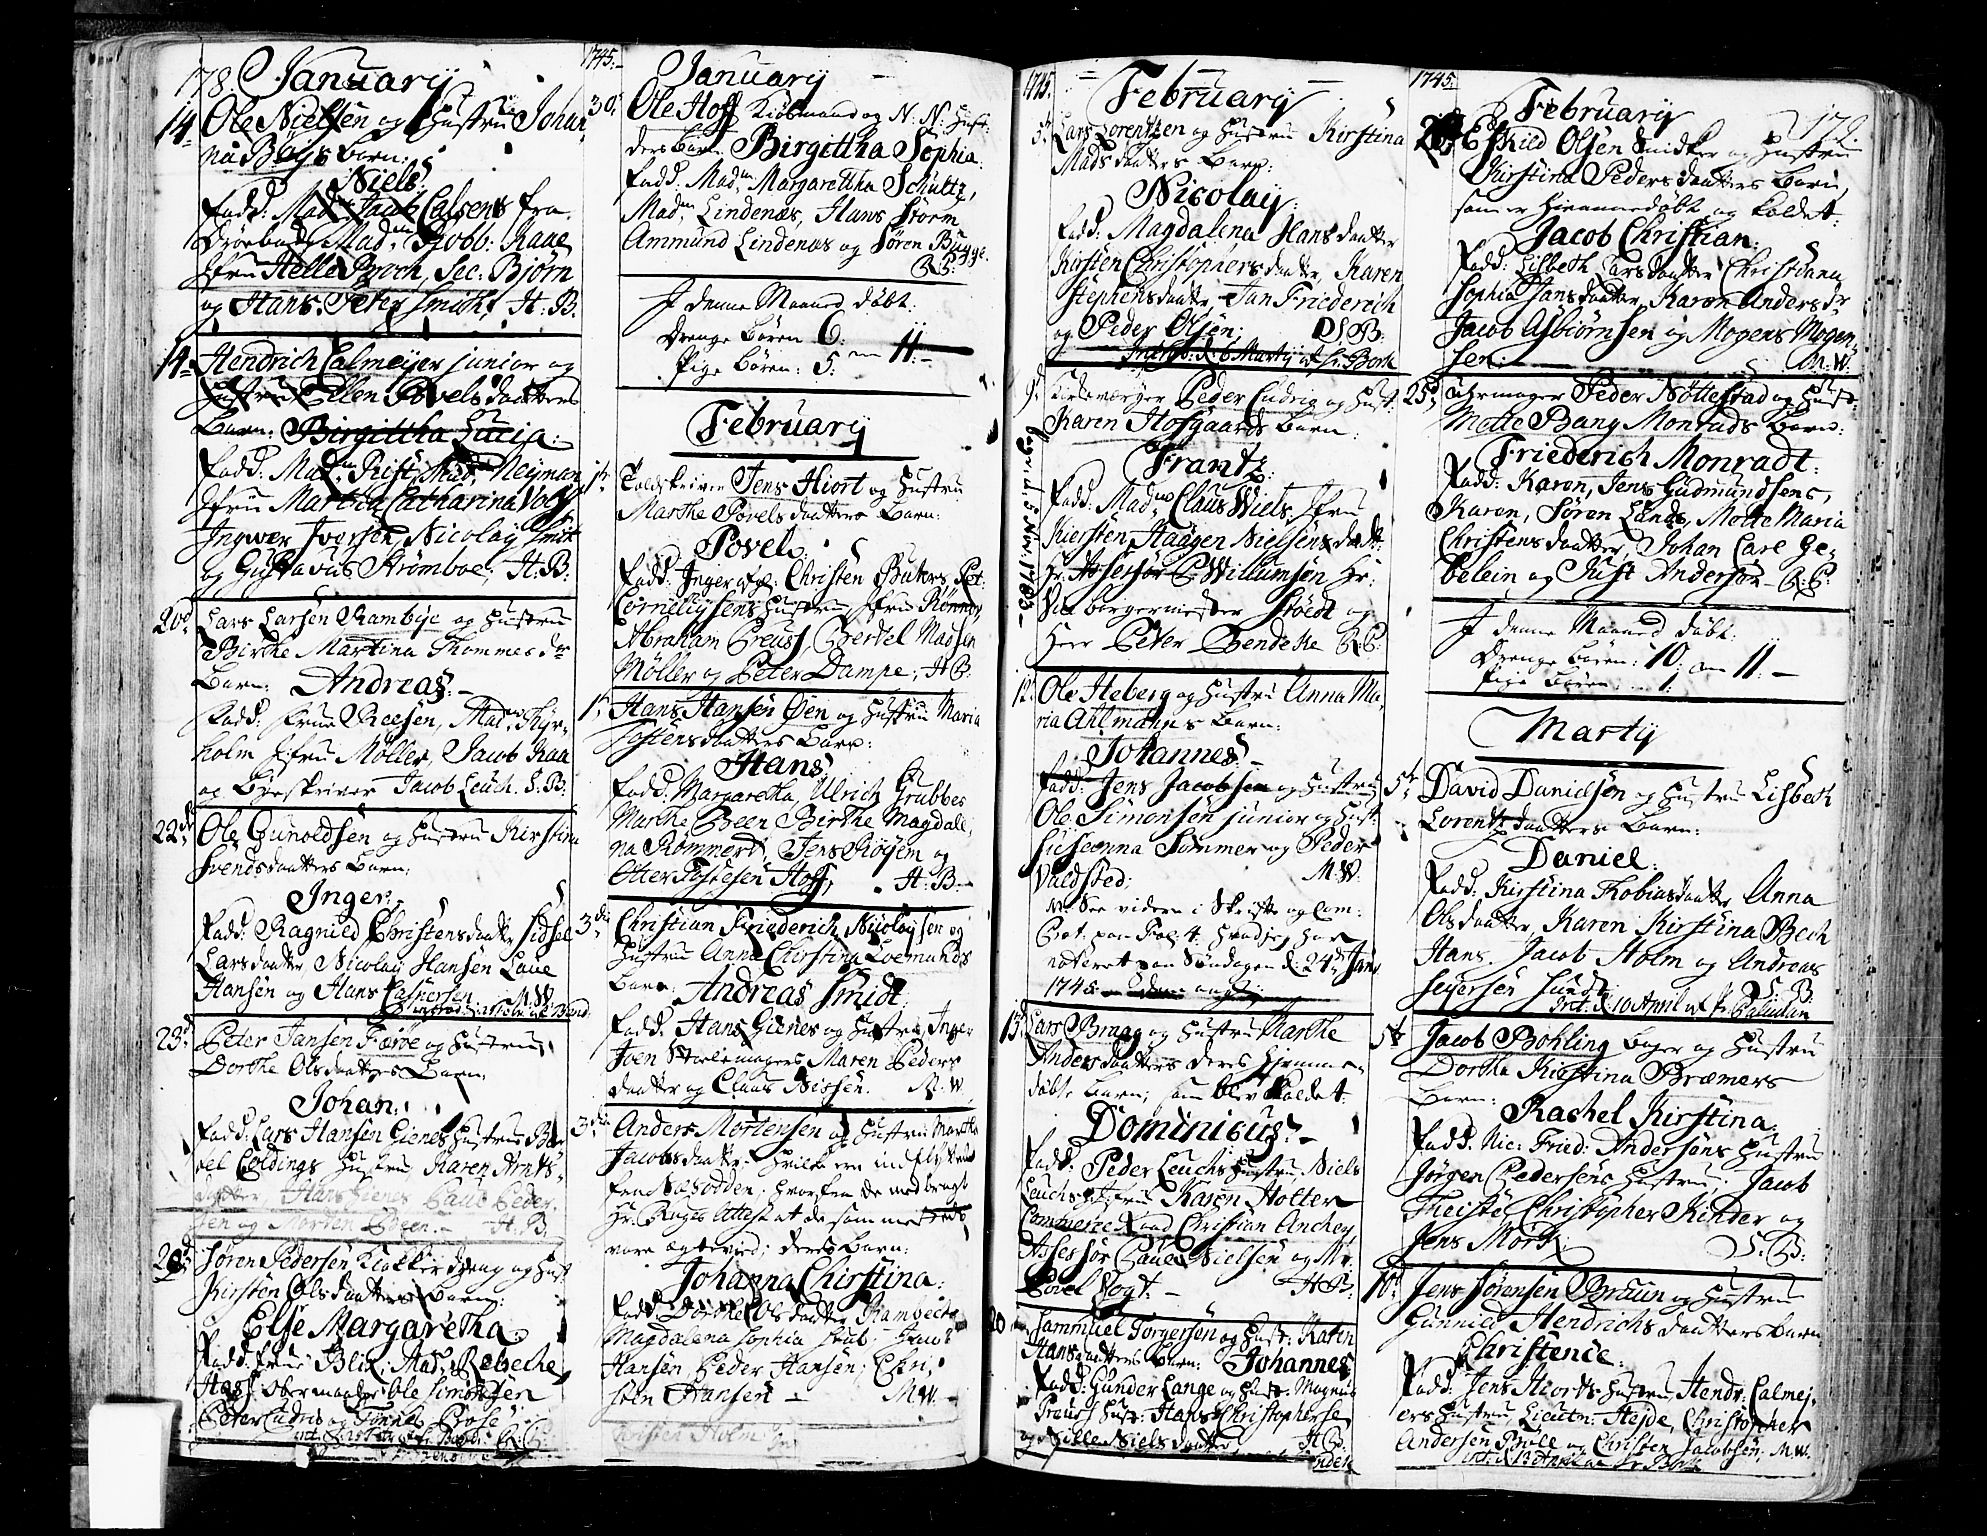 178. January
14 Ole Nielsen og Hustru Johan
na Boÿs Barn:
Niels
Fadd: Mad: Jacob Calsens fra
Mad: Kaae
Jfru Helle Broch, Sec: Bjørn
og Hans Peter Smith, H: B.
14 Hendrich Calmeijer junior og
Hustrue Ellen Povels datters
Barn: Birgittha Lucia:
Fadd: Mad: Rist, Mad: Neÿman
Jfru Martha Catharina Vogt,
Ingwer Iversen, Nicolaÿ Smit
og Gustavus Strømboe; H: B:
20d Lars Larsen Rambÿe og Hustrue
Birthe Martina Thommes dr
Barn: Andreas:-
Fadd: Fruе Reesen, Mad: Thÿr-
holm Jfru Møller, Jacob Kaa
og Byeskriver Jacob Leuch. S: B:
22d Ole Gunoldsen og Hustru Kirstina
Svendsdatters Barn:
Inger:
Fadd: Ragnild Christensdaatter Sidsel
Larsdaatter, Nicolaÿ Hansen Laue
Hansen og Hans Casversen. M: W:
23d Peter Jansen Færøe og Hustru
Dorthe Olsdaatters Barn:
Johan:
Fadd: Lars Hansen Gienes Hustrue Bar
bel Coldings Hustru, Karen Arnts-
daatter, Hans Gienes Laue Peder
sen og Morten Been. - H: B.
Søren Pedersen Klokker dreng og Hust:
Kirsten Olsdaatters Barn:
Else Margaretha:
Fadd: Frue Blix, Mad: Rebeche
Hass: Obermaaler Ole Simonsen
Peter Ludvis og Tønnes Bose
1745.
January
30. Ole Hoff Kiøbmand og N: N: Hust:
ders Barn Birgittha Sophia:
Fadd: Madm Margarettha Schultz,
Madm Lindenæs, Hans Storm
Ammund Lindenæs og Søren Bugge.
R: P:
I denne Maaned døbt:
Drenge Børen 6.
Pige Børen: 5. 11.-
February
1te Toldskriver Jens Hiort og Hustru
Marthe Povels daatters Barn:
Povel:
Fadd: Inger Christen Bukes, Pet:
Cornelijsens Hustrue, Jfru Rønnov,
Abraham Creuss, Bertel Madsen
Møller og Peter Dampe, H: B.
1te Hans Hansen Øen og Hustru Maria
Tostensdaatters Barn:
Hans
Fadd: Margaretha, Ulrich Grubbes
Marthe Been Birthe Magdale,
na Rommerdt, Jens Røÿem og
Otter Tostesen Hoff, H: B:-
3die Christian Friederich Nicolaÿsen og
Hustrue Anna Christina Loemunds
Barn: Andreas Smidt:
Fadd: Hans Gienes og Hustru, Inger
Joen Stolemagers Maren Peders
daatter og Claus Nissen. M: W.
3die Anders Mortensen og Hustrue Marthe
Jacobsdaatter:
fra Næsodden, hvorfra de medbragt
Hr: Bugges Attest at de sammesteds
vare ægteviet; deres Barn:
Johanna Christina:
Fadd: Dorthe Olsdaatter Rambech
Magdalena Sophia Stub: Hans
Hansen Peder Hansen, Chri,
sten Hansen - M: W. -
Holm
1745.
February
5te Lars Lorentzen og Hustrue Kirstina
Madsdaatters Barn:
Nicolaÿ:
Fadd: Magdalena Hansdaatter
Kirsten Christophersdaatter, Karen
Stephensdaatter, Jan Friederich
og Peder Olsen: S: B:
9d Kirkeverger Peder Ludvig og Hust:
Karen Hofgaards Barn:
Frantz:
Fadd: Mad: Claus Wiels, Jfru
Kiersten Haagen Nielsens daatt:
Hr: Assessor C Willumsen Hr:
Vice borgermester Stoedt og
Herr Peter Bendeke R: P:
12 Ole Heberg og Hustru Anna Ma,
ria Ahlmanns Barn:
Johannes:-
Fadd: Jens Jacobsen og Hustrue
Ole Simonsen junior og Hust:
Susanna Sommer og Peder
Valdsted; M: W.
NB: See videre i Skrifte og Com:
noteret paa Søndagen d: 24de Janv
1745:
13d Lars Braag og Hustru Marthe
Andersdaatters deres Hjemme-
døbte Barn, som blev kaldet:
Dominicus:-
Fadd: Peder Leuchs Hustrue, Niels
Leuchs Jfru Karen Holter
Commerce Raad Christian Ancher,
Assessor Paue Nielsen og Mr:
Povel Vogt. - H: B:
20 Sammuel Torgersen og Hust: Karen
Hansdaatters Barn: Johannes
Fadd: Gunder Lange og Hust: Magnus
Preuss Hust: Hans Christophersen
og Sille Nielsdaatter H: B:
1745.
February
179.
Eskild Olsen Snidker og Hustrue
Kirstina Peders daatters Barn,
som er Hiemmedøbt og kaldet:
Jacob Christian:
Fadd: Lisbeth Larsdaatter Christiana
Sophia Jansdaatter, Karen Andersdr
Jacob Asbiørnsen og Mogens Mogen,
sen: M: W.
25d Uhrmager Peder Nøttestad og Hust:
Mette Bang Monrads Barn:
Friederich Monradt:
Fadd: Karen, Jens Gudmundsens,
Karen, Søren Lunds, Mette Maria
Christensdaatter, Johan Carl Ge,
belein og Just Andersen - R: P:
I denne Maaned døbt:
Drenge Børen: 10.
Pige Børen: 1. 11. -
Martÿ
5te David Danielsen og Hustrue Lisbeth
Lorentzdaatters Barn:
Daniel:
Fadd: Kirstina Thobiasdaatter Anna
Olsdaatter, Karen Kirstina Bech
Hans Jacob Holm og Andreas
Seÿersen Lund: S: B:
Int: d: 10 April af Fr: Paludan
5te Jacob Bohling Bager og Hustrue
Dorthe Kirstina Bræmers
Barn: Rachel Kirstina:
Fadd: Nic: Fried: Andersens Hustrue
Jørgen Pedersens Hustrue: Jacob
Theiste, Christopher Kinder og
Jens Mørk: S: B:
10d Jens Sørensen Bruun og Hustrue
Gunnild Hendrichs daatters Barn
Christence:
Fadd: Jens Hiorts Hustrue, Hendr: Calmej,
ers Hustrue Lieutn: Hejde, Christopher
Andersen Bølle og Christen Jacobsen; M: W.